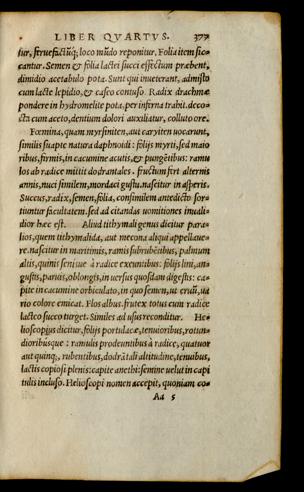 LIBER QVARTVS. 377
tur, seruefactúq; loco mûdo reponitur. Folia item sic-
cantur. Semen & folia lactei succi effectum præbent,
dimidio acetabulo pota. Sunt qui inueterant, admisto
cum lacte lepidio, & caseo contuso. Radix drachmæ
pondere in hydromelite pota, per infirna trahit. deco-
cta cum aceto, dentium dolori auxiliatur, colluto ore.
Fœmina, quam myrsiniten, aut caryiten uocarunt,
similis suapte natura daphnoidi: folijs myrti, sed maio
ribus, firmis, in cacumine acutis, & pungētibus: ramu
los ab radice mittit dodrantales. fructum fert alternis
annis, nuci similem, mordaci gustu. nascitur in asperis.
Succus, radix, semen, folia, consimilem antedicto sor-
tiuntur facultatem, sed ad citandas uomitiones inuali-
dior hæc est. Aliud tithymali genus dicitur para-
lios, quem tithymalida, aut mecona aliqui appellaue-
re. nascitur in maritimis, ramis subrubētibus, palmum
altis, quinis senisue à radice exeuntibus: folijs lini, an-
gustis, paruis, oblongis, in uersus quosdam digestis: ca-
pite in cacumine orbiculato, in quo semen, ut erui, ua
rio colore emicat. Flos albus. frutex totus cum radice
lacteo succo turget. Similes ad usus reconditur. He-
lioscopius dicitur, folijs portulacæ, tenuioribus, rotun-
dioribúsque: ramulis prodeuntibus à radice, quatuor
aut quinq;, rubentibus, dodrātali altitudine, tenuibus,
lactis copiosi plenis: capite anethi: semine uelut in capi
tulis incluso. Helioscopi nomen accepit, quoniam co-
Aa 5